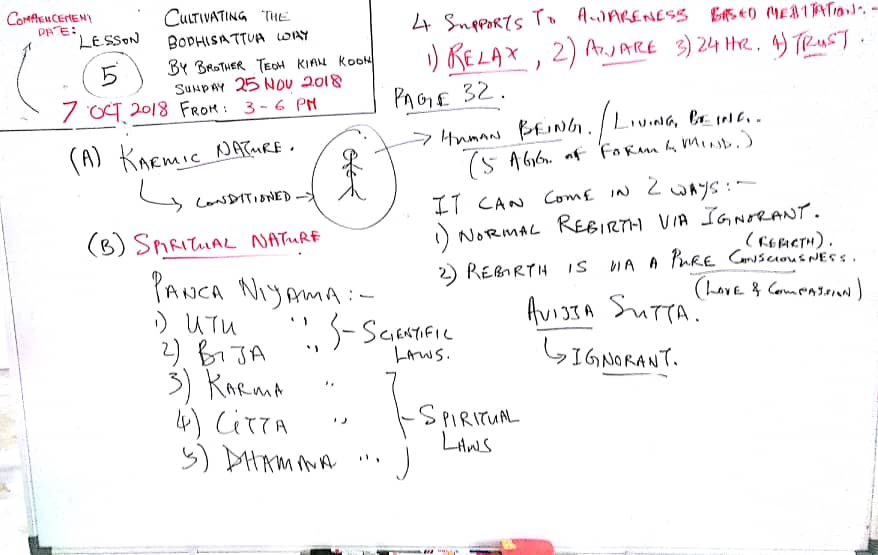 COMMENCEMENT
DATE:
LESSON
5
7 OCT 2018
CULTIVATING THE
BODHISATTVA WAY
BY BROTHER TEOH KIAN KOON
SUNDAY 25 NOV 2018
FROM: 3-6 PM
4 SUPPORTS TO AWARENESS BASED MEDITATION:-
1) RELAX, 2) AWARE 3) 24 HR. 4) TRUST.
PAGE 32.
(A) KARMIC NATURE.
CONDITIONED
HUMAN BEING. / LIVING BEING..
(5 AGG. of FORM & MIND.)
IT CAN COME IN 2 WAYS:-
1) NORMAL REBIRTH VIA IGNORANT.
(REBIRTH).
2) REBIRTH IS VIA A PURE CONSCIOUSNESS.
(LOVE & COMPASSION)
AVIJJA SUTTA.
IGNORANT.
(B) SPIRITUAL NATURE
PANCA NIYAMA:-
1) UTU ''
2) BIJA ''
SCIENTIFIC
LAWS.
3) KARMA ''
4) CITTA ''
5) DHAMMA '''
SPIRITUAL
LAWS